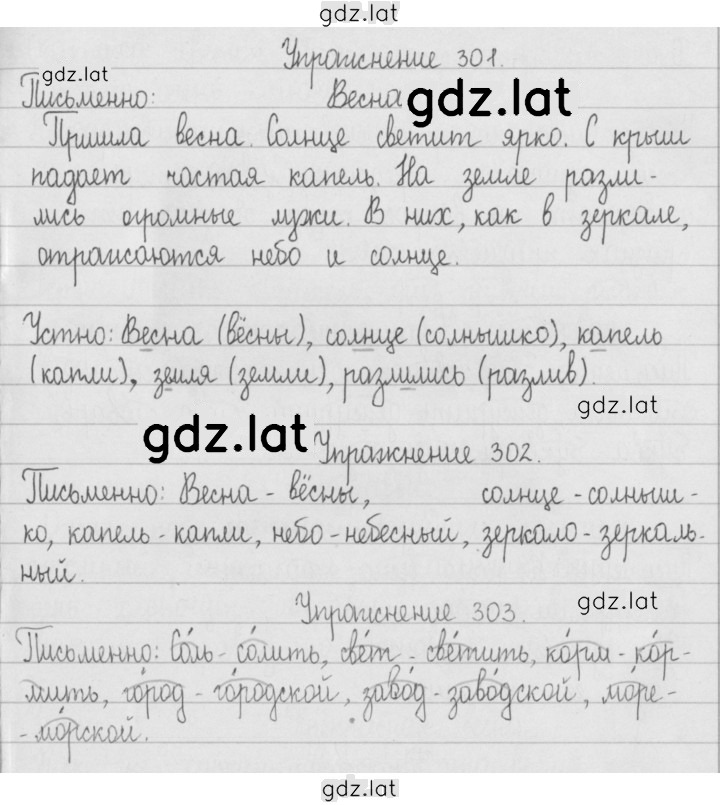 gdz.lat
Упражнение 301.
gdz.lat
Письменно: Весна
gdz.lat
Пришла весна. Солнце светит ярко. С крыш
падает частая капель. На земле разли-
лись огромные лужи. В них, как в зеркале,
отражаются небо и солнце.
Устно: Весна (вёсны), солнце (солнышко), капель
(капли), земля (земли), разлились (разлив).
gdz.lat
gdz.lat
Упражнение 302.
Письменно: Весна - вёсны, солнце - солныш-
ко, капель - капли, небо - небесный, зеркало - зеркаль-
ный.
gdz.lat
Упражнение 303.
Письменно: Со́ль - со́лить, све́т - све́тить, ко́рм - ко́р-
мить, го́род - го́родской, заво́д - заво́дской, мо́ре -
- мо́рской.
gdz.lat